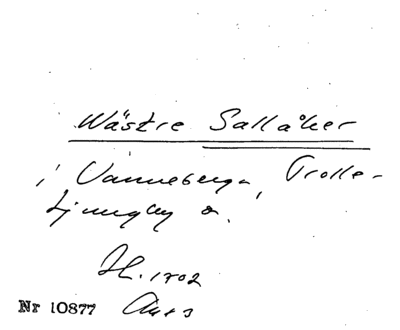 Wästre Sallåker
i Vanneberga, Trolle-
Ljungby s.
H. 1702
Nr 10877